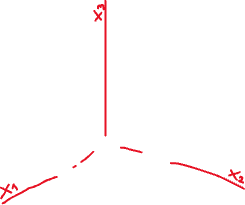 x3
x1
x2